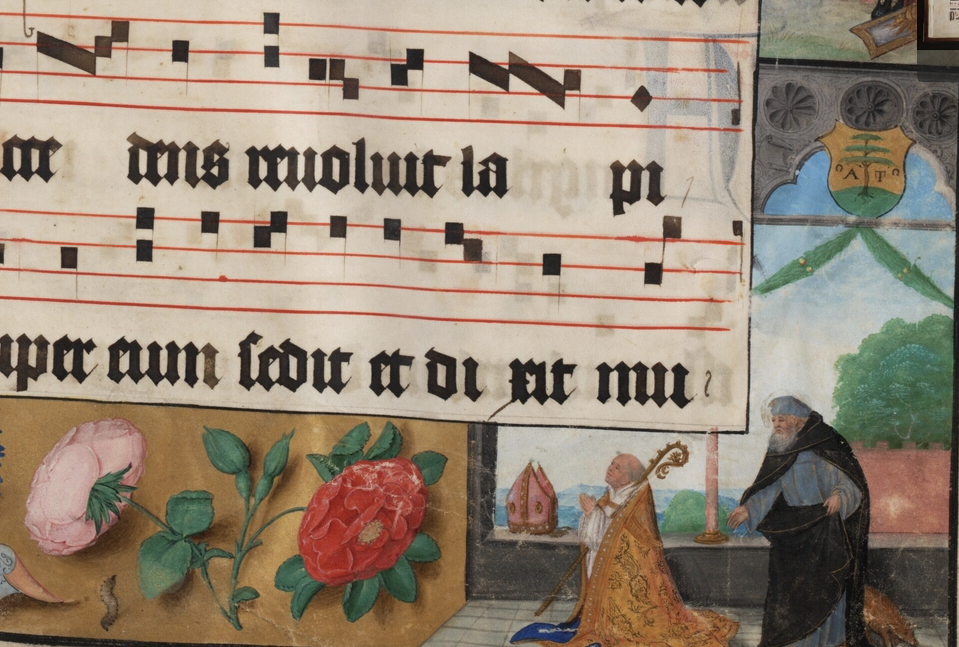 dens revoluit la pi
uper eum sedit et di xit mu
A T O